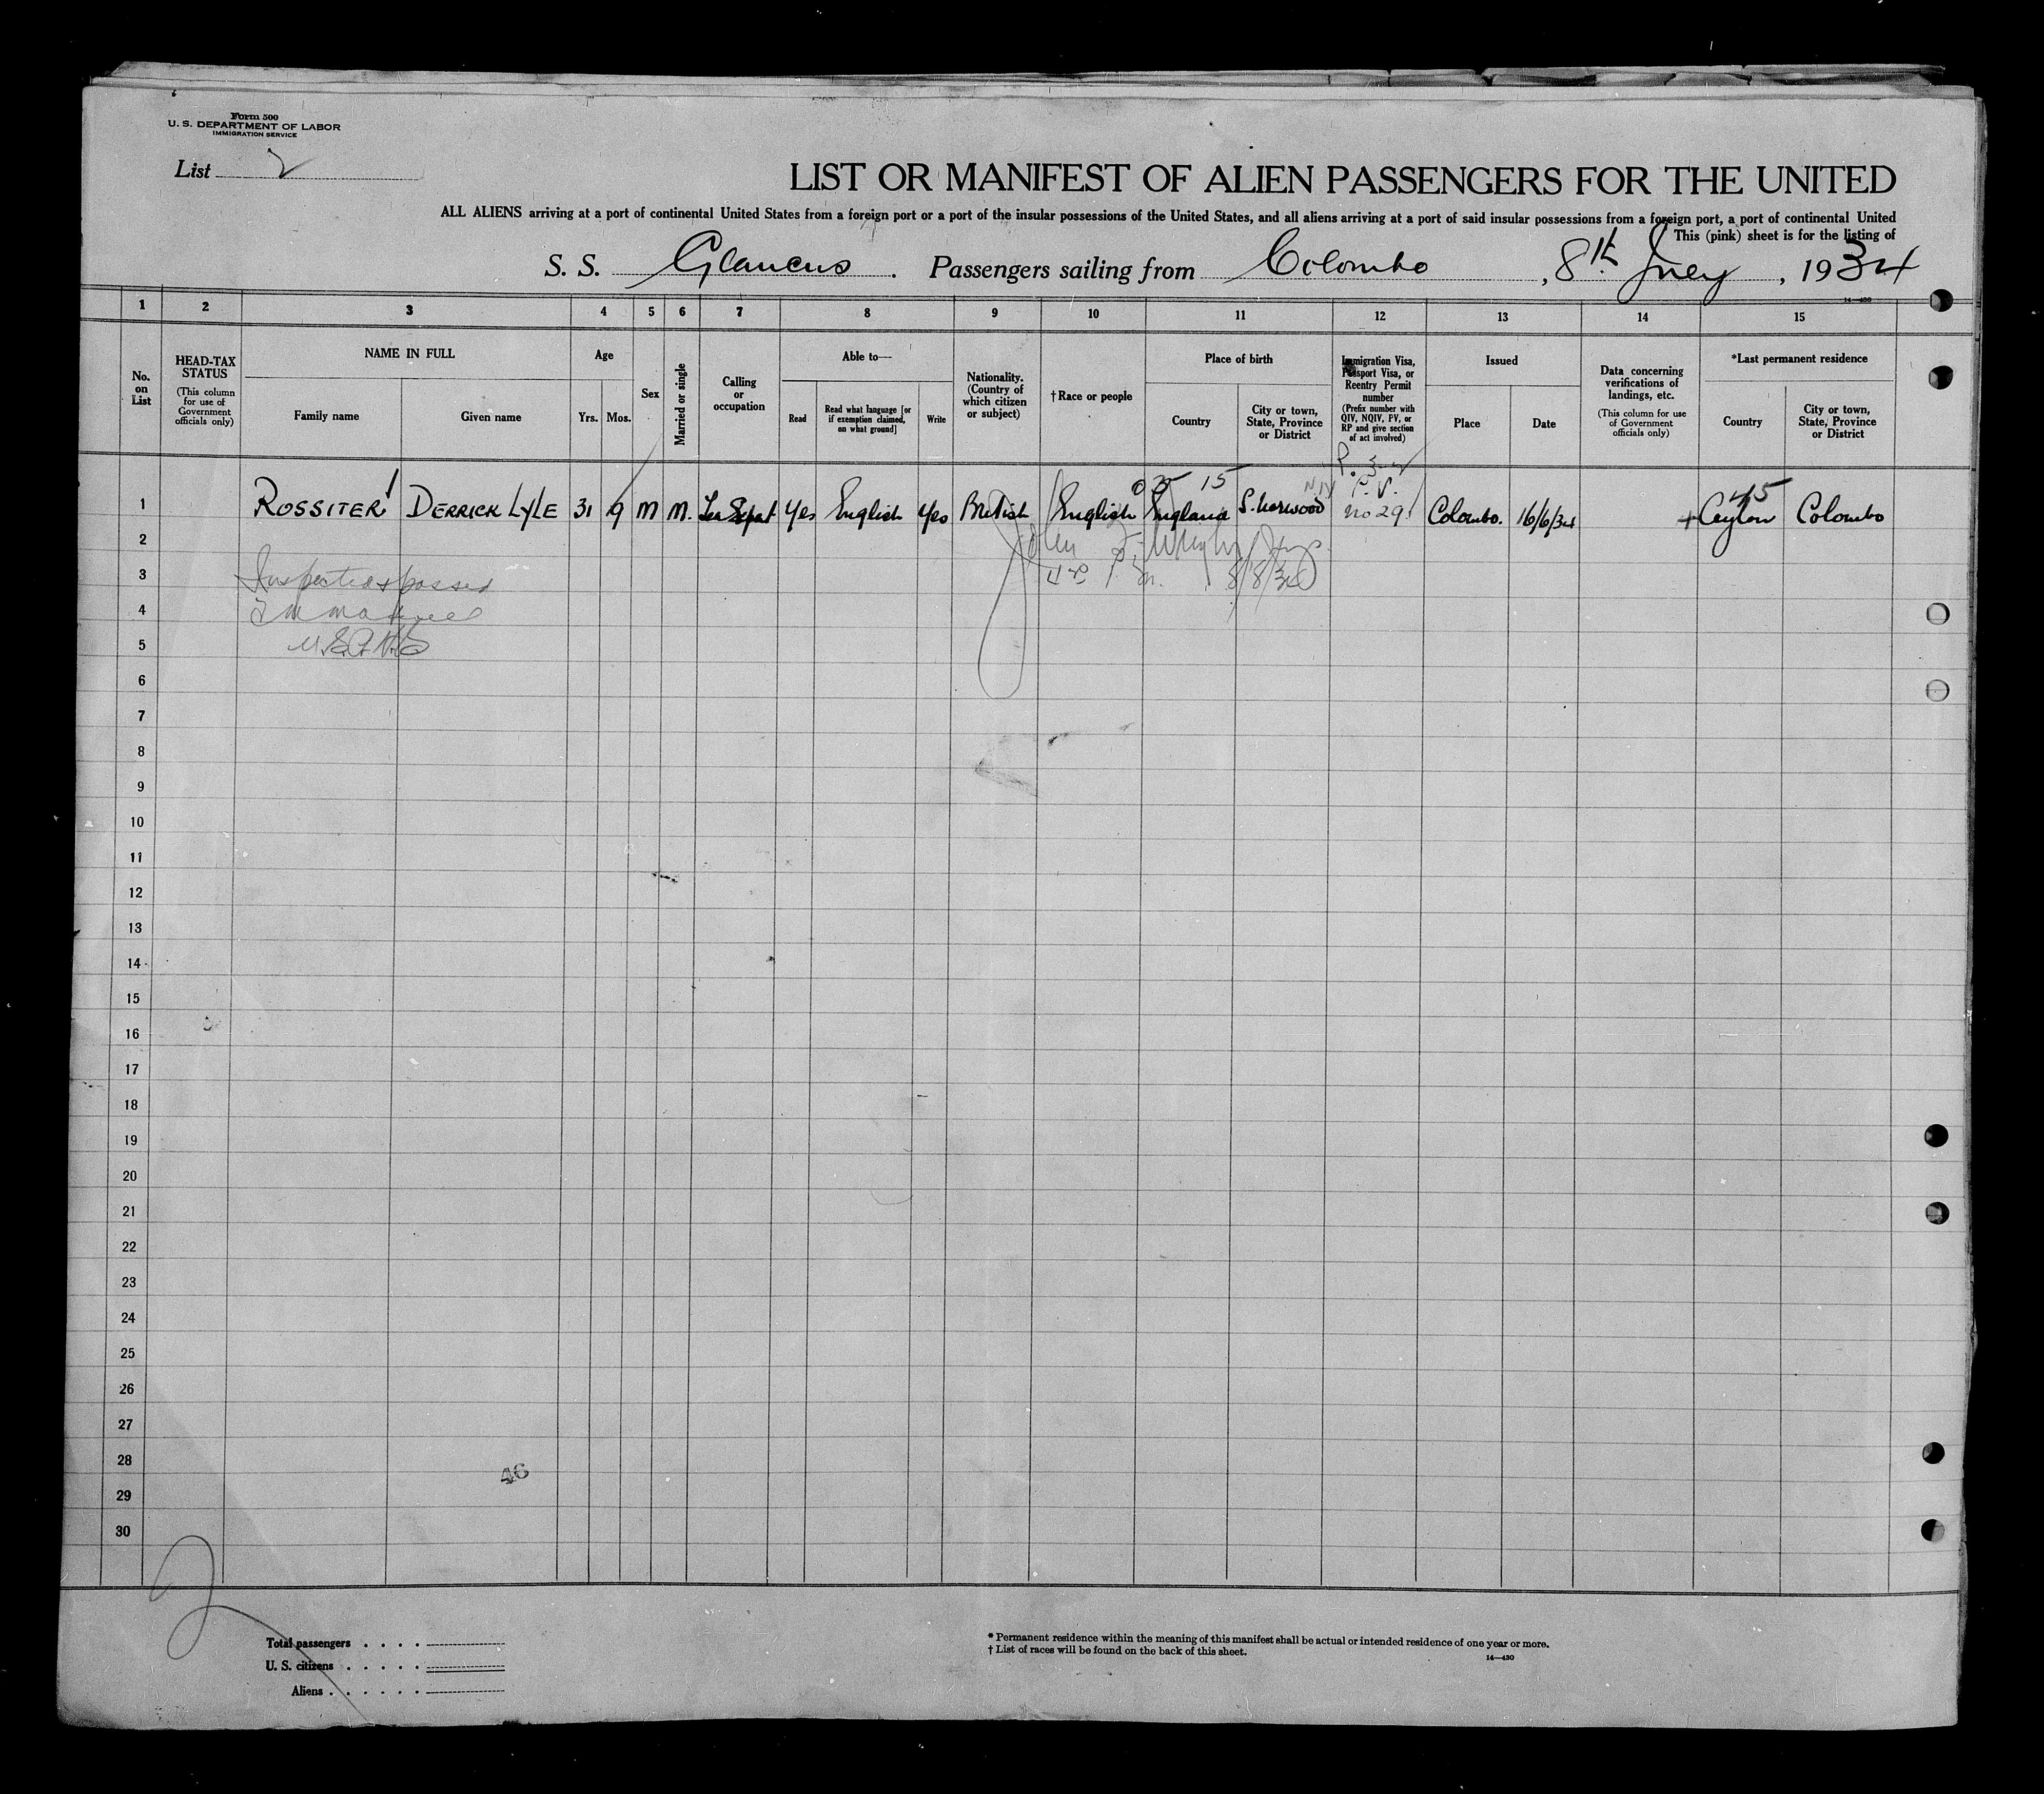 Form 500
U. S. DEPARTMENT OF LABOR
IMMIGRATION SERVICE
List 2
LIST OR MANIFEST OF ALIEN PASSENGERS FOR THE UNITED
ALL ALIENS arriving at a port of continental United States from a foreign port or a port of the insular possessions of the United States, and all aliens arriving at a port of said insular possessions from a foreign port, a port of continental United
This (pink) sheet is for the listing of
S. S. Glaucus. Passengers sailing from Colombo, 8th July, 1934
14—430
1 2 3 4 5 6 7 8 9 10 11 12 13 14 15
No. on List
HEAD-TAX STATUS
(This column for use of Government officials only)
NAME IN FULL
Family name
Given name
Age
Yrs. Mos.
Sex
Married or single
Calling or occupation
Able to—
Read
Read what language [or if exemption claimed, on what ground]
Write
Nationality. (Country of which citizen or subject)
†Race or people
Place of birth
Country
City or town, State, Province or District
Immigration Visa, Passport Visa, or Reentry Permit number
(Prefix number with QIV, NQIV, PV, or RP and give section of act involved)
Issued
Place
Date
Data concerning verifications of landings, etc.
(This column for use of Government officials only)
*Last permanent residence
Country
City or town, State, Province or District
15 45
P.V.
1 ROSSITER DERRICK LYLE 31 9 M M. Tea Yes English Yes British English England S. Norwood No 29. Colombo. 16/6/34 Ceylon Colombo
2
3 Inspected & passed 8/8/34
4
5
6
7
8
9
10
11
12
13
14
15
16
17
18
19
20
21
22
23
24
25
26
27
28
46
29
30
2
Total passengers
U. S. citizens
Aliens
* Permanent residence within the meaning of this manifest shall be actual or intended residence of one year or more.
† List of races will be found on the back of this sheet.
14—430